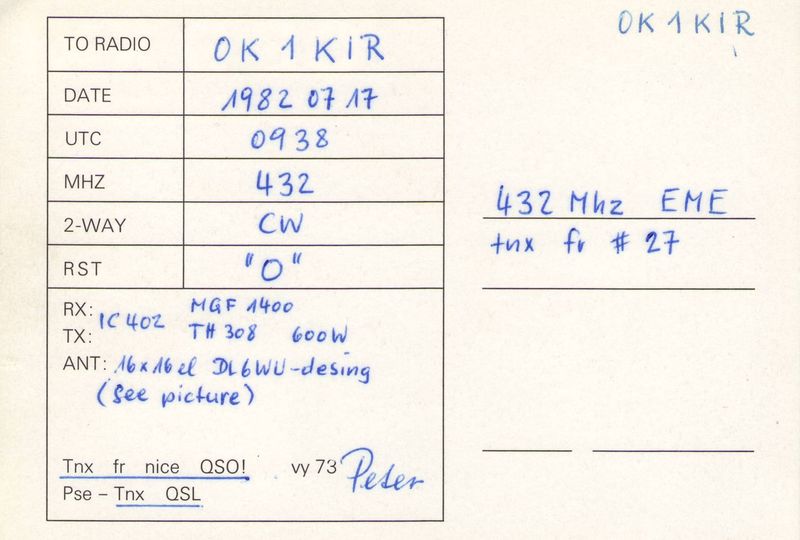 OK1KIR
TO RADIO OK1KIR
DATE 1982 07 17
UTC 0938
MHZ 432
2-WAY CW
RST "O"
RX: IC 402 MGF 1400
TX: TH 308 600W
ANT: 16x16el DL6WU-desing
(See picture)
Tnx fr nice QSO! vy 73 Peter
Pse - Tnx QSL
432 Mhz EME
tnx fr # 27